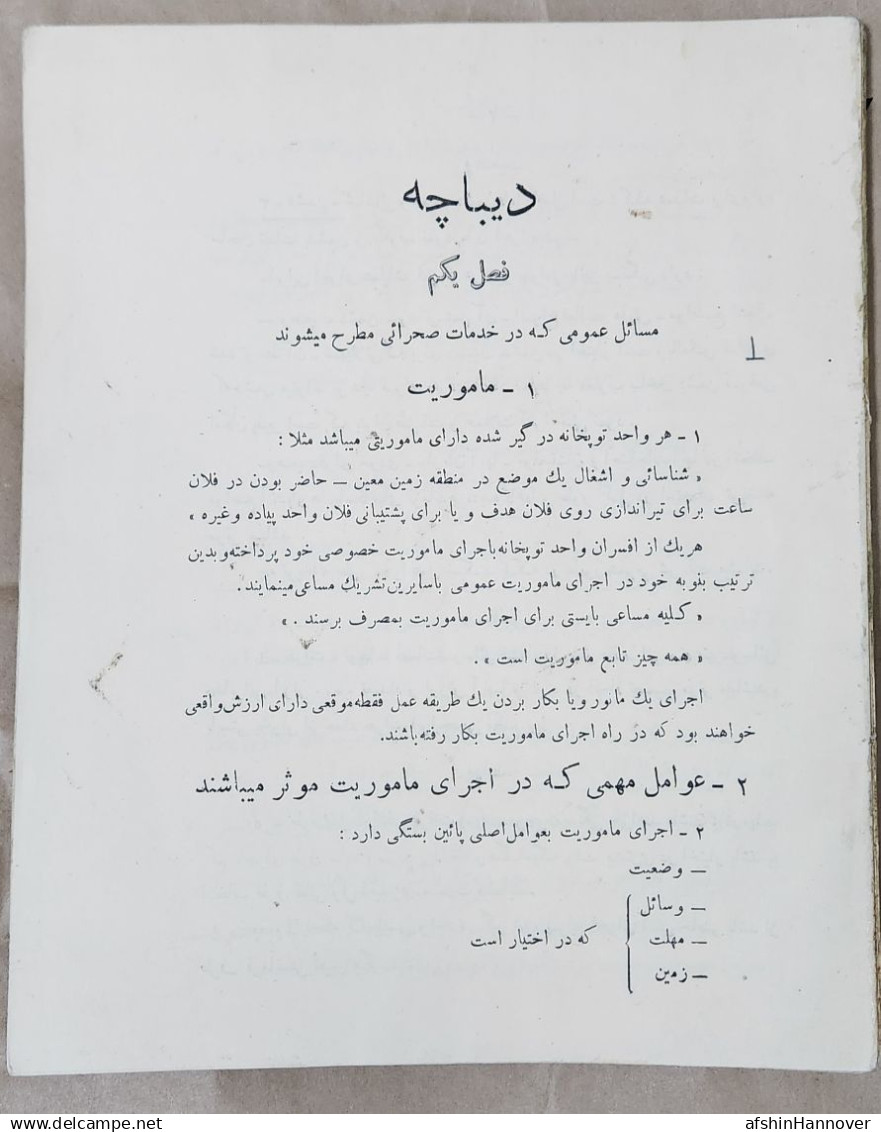 دیباچه
فصل یکم
مسائل عمومی که در خدمات صحرائی مطرح میشوند
۱ - ماموریت
۱ - هر واحد توپخانه درگیر شده دارای ماموریتی میباشد مثلا :
« شناسائی و اشغال یك موضع در منطقه زمین معین — حاضر بودن در فلان
ساعت برای تیراندازی روی فلان هدف و یا برای پشتیبانی فلان واحد پیاده وغیره »
هریك از افسران واحد توپخانه باجرای ماموریت خصوصی خود پرداخته وبدین
ترتیب بنوبه خود در اجرای ماموریت عمومی باسایرین تشریك مساعی مینمایند.
« کلیه مساعی بایستی برای اجرای ماموریت بمصرف برسند . »
« همه چیز تابع ماموریت است » .
اجرای یك مانور ویا بکار بردن یك طریقه عمل فقطه موقعی دارای ارزش واقعی
خواهند بود که در راه اجرای ماموریت بکار رفته باشند.
۲ - عوامل مهمی که در اجرای ماموریت موثر میباشند
۲ - اجرای ماموریت بعوامل اصلی پائین بستگی دارد :
— وضعیت
— وسائل
— مهلت که در اختیار است
— زمین
delcampe.net
afshinHannover